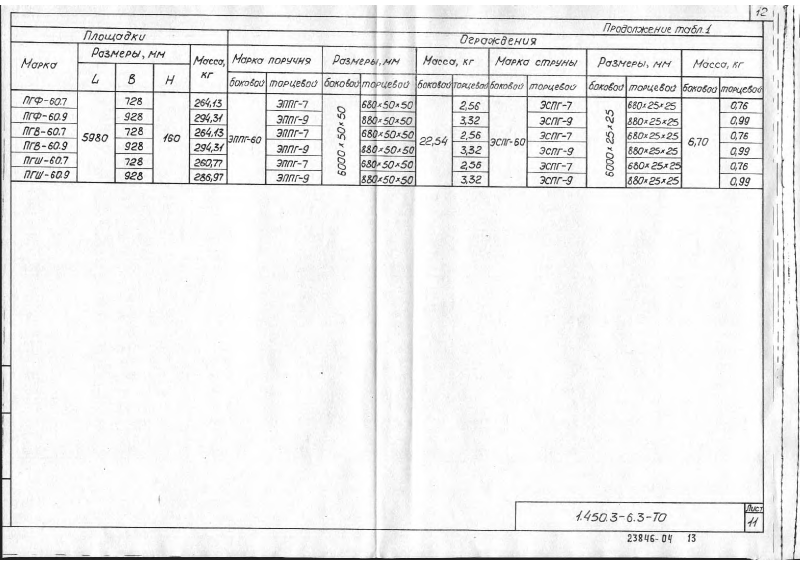 12
Продолжение табл.1
Площадки Ограждения
Марка Размеры, мм Масса, кг Марка поручня Размеры, мм Масса, кг Марка струны Размеры, мм Масса, кг
L B H боковой торцевой боковой торцевой боковой торцевой боковой торцевой боковой торцевой боковой торцевой
ПГФ-60.7 5980 728 160 264,13 ЭППГ-60 ЭППГ-7 6000×50×50 680×50×50 22,54 2,56 ЭСПГ-60 ЭСПГ-7 6000×25×25 680×25×25 6,70 0,76
ПГФ-60.9 928 294,31 ЭППГ-9 880×50×50 3,32 ЭСПГ-9 880×25×25 0,99
ПГВ-60.7 728 264,13 ЭППГ-7 680×50×50 2,56 ЭСПГ-7 680×25×25 0,76
ПГВ-60.9 928 294,31 ЭППГ-9 880×50×50 3,32 ЭСПГ-9 880×25×25 0,99
ПГШ-60.7 728 260,77 ЭППГ-7 680×50×50 2,56 ЭСПГ-7 680×25×25 0,76
ПГШ-60.9 928 286,97 ЭППГ-9 880×50×50 3,32 ЭСПГ-9 880×25×25 0,99
1.450.3-6.3-ТО
Лист
11
23846-04 13